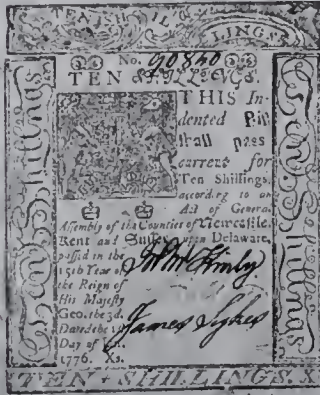 TEN SHILLINGS.
No. 90840
TEN SHILLINGS.
THIS In-
dented Bill
shall pass
current for
Ten Shillings,
according to an
Act of General
Assembly of the Counties of Newcastle,
Kent and Sussex upon Delaware,
passed in the
15th Year of
the Reign of
His Majesty
Geo. the 3d.
Dated the 1st
Day of Jan.
1776. Xs.
James Sykes
Ten Shillings
Ten Shillings
TEN SHILLINGS. X